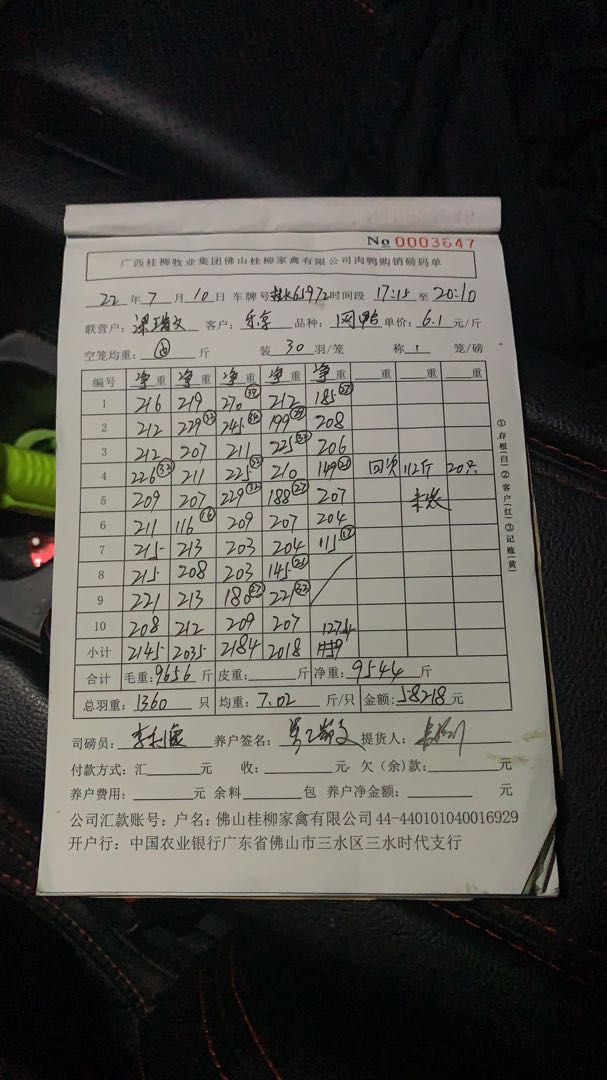 No 0003647
广西桂柳牧业集团佛山桂柳家禽有限公司肉鸭购销磅码单
22 年 7 月 10 日 车牌号 65972 时间段 17:15 至 20:10
联营户: 梁瑞文 客户: 乐享 品种: 网鸭 单价: 6.1 元/斤
空笼均重: 斤 装 30 羽/笼 称 1 笼/磅
编号 净重 净重 净重 净重 净重 重 重 重
1 216 219 270 212 185
2 212 229 245 199 208
3 212 207 211 225 206
4 226 211 225 210 149 回次 112斤 20只
5 209 207 229 188 207
6 211 116 209 207 204
7 215 213 203 204 115
8 215 208 203 145
9 221 213 180 221
10 208 212 209 207 1274
小计 2145 2035 2184 2018
合计 毛重: 9656 斤 皮重: 斤 净重: 9544 斤
总羽重: 1360 只 均重: 7.02 斤/只 金额: 58218 元
司磅员: 养户签名: 提货人:
付款方式: 汇 元 收: 元 欠(余)款: 元
养户费用: 元 余料 包 养户净金额: 元
公司汇款账号: 户名: 佛山桂柳家禽有限公司 44-440101040016929
开户行: 中国农业银行广东省佛山市三水区三水时代支行
①存根(白)②客户(红)③记账(黄)